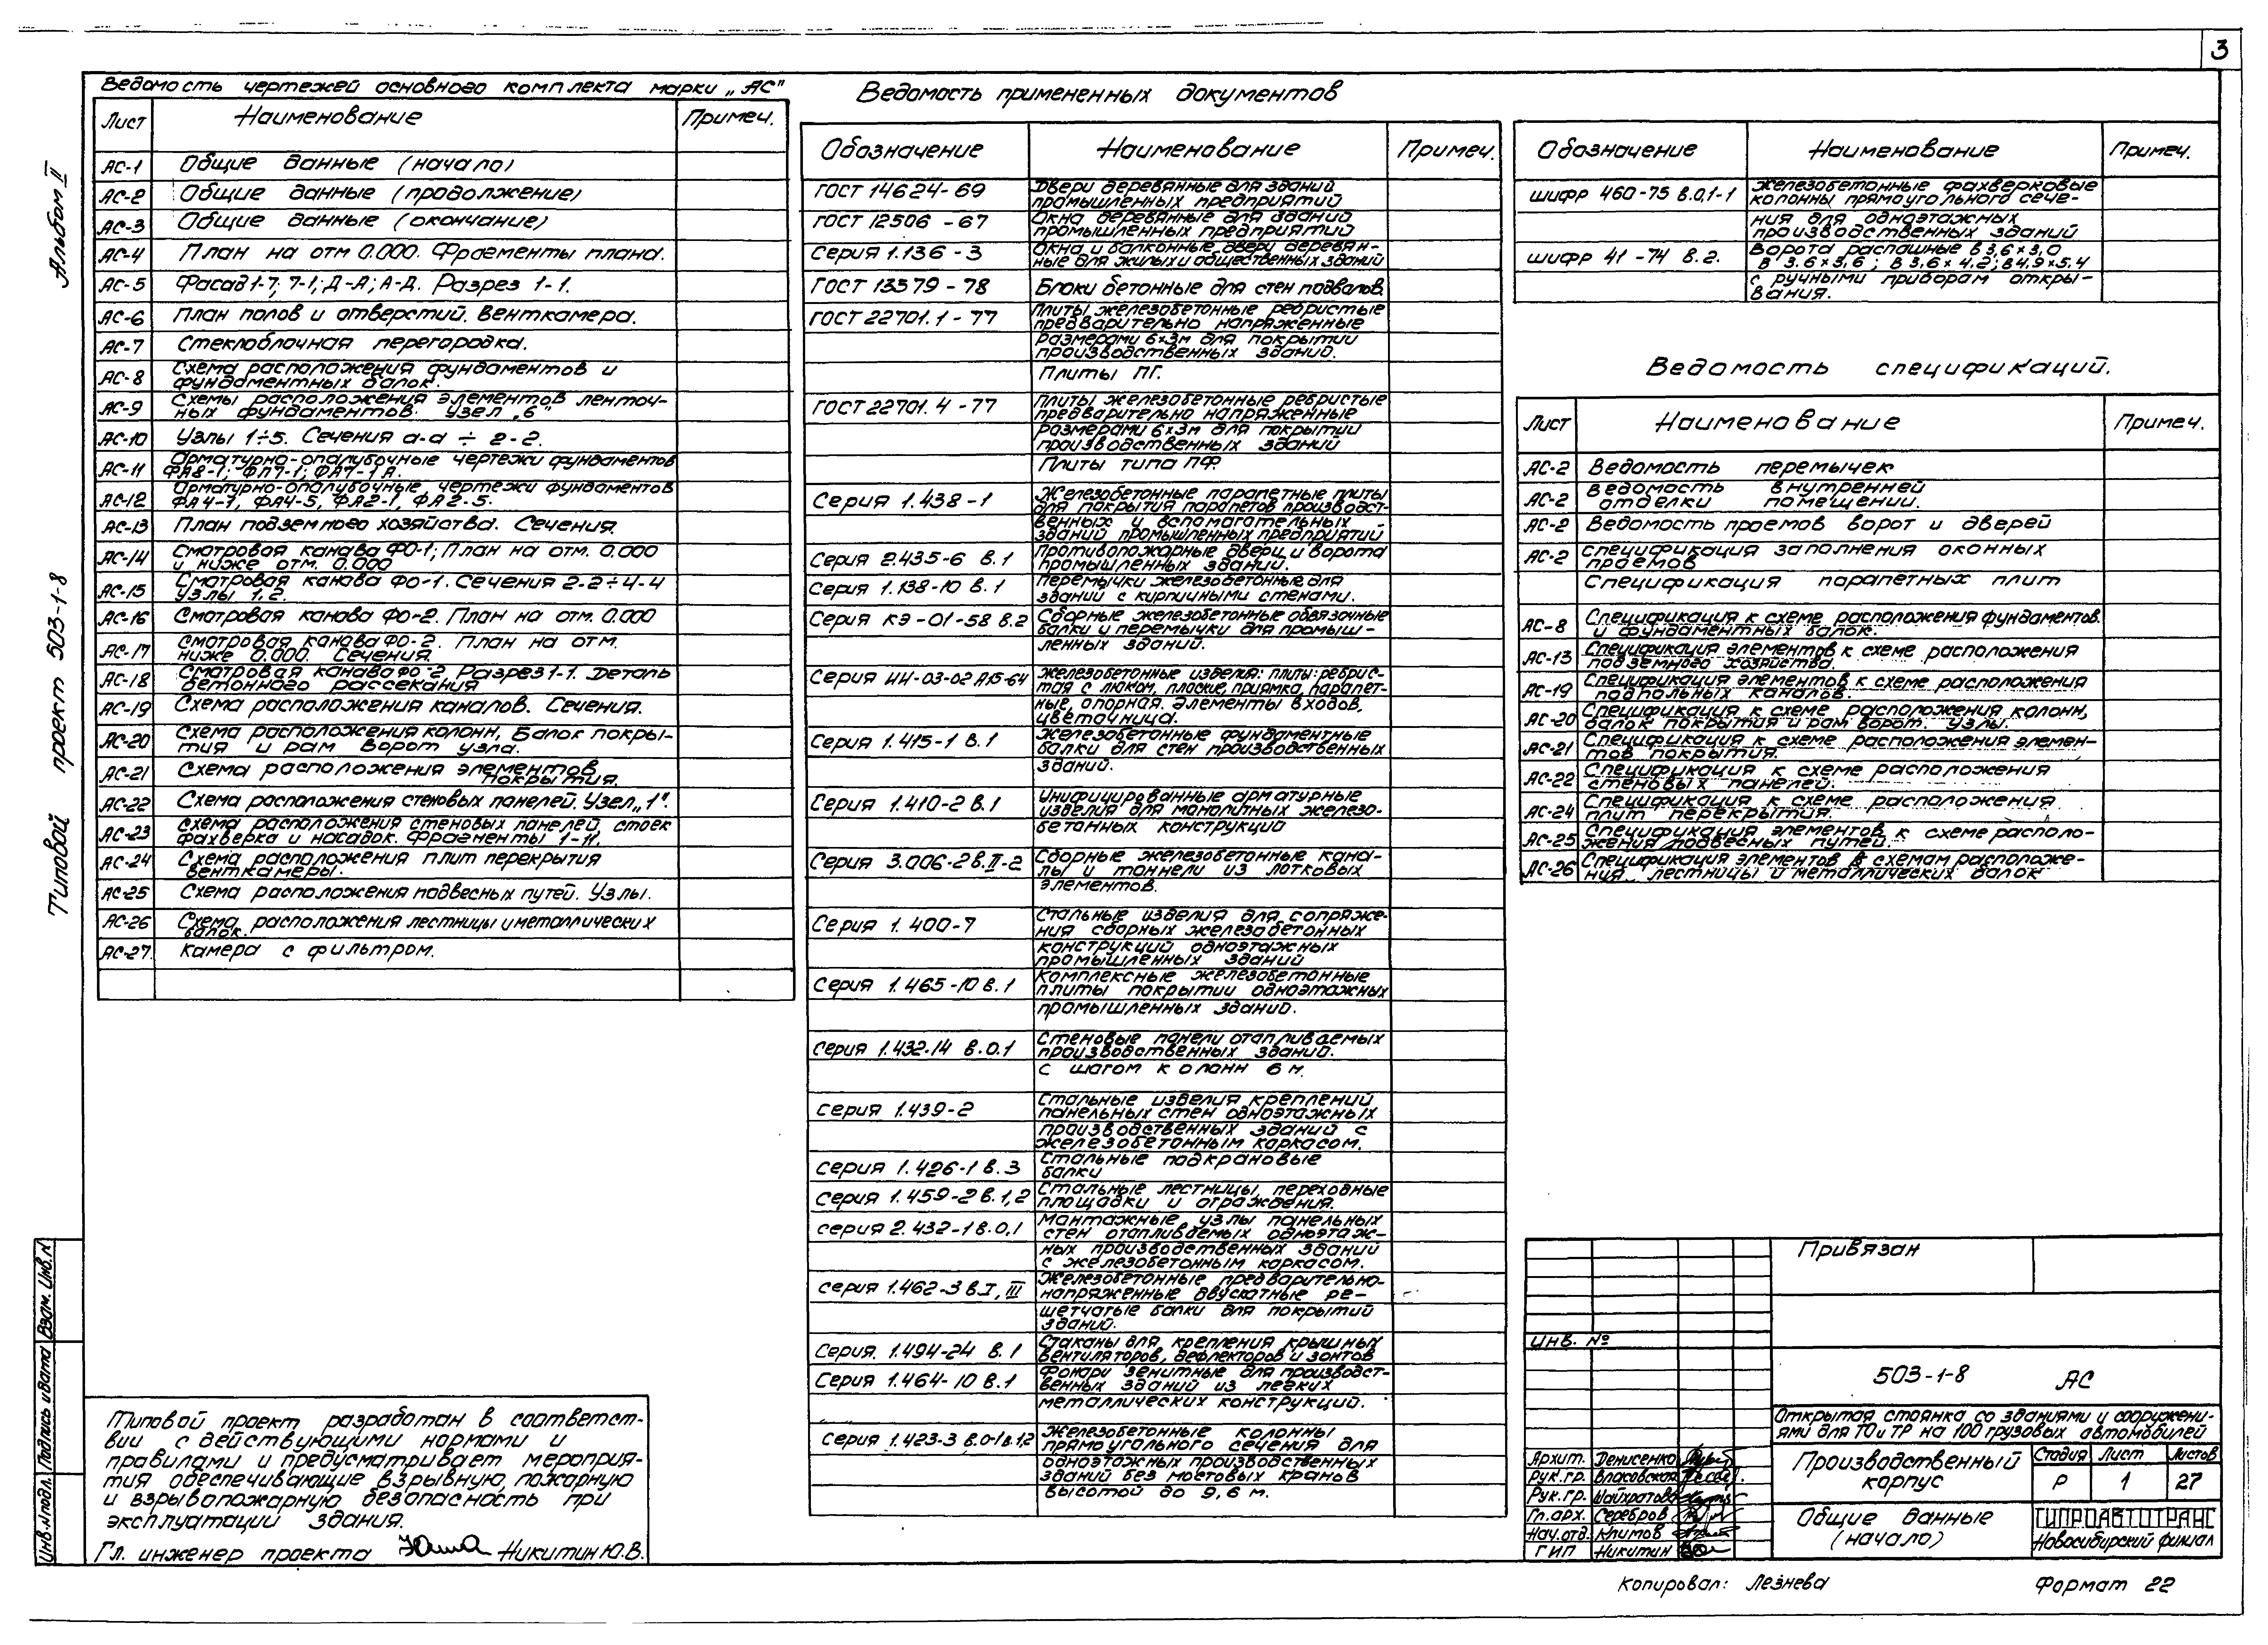 3
Альбом II
Типовой проект 503-1-8
Ведомость чертежей основного комплекта марки „АС"
Лист Наименование Примеч.
АС-1 Общие данные (начало)
АС-2 Общие данные (продолжение)
АС-3 Общие данные (окончание)
АС-4 План на отм 0.000. Фрагменты плана.
АС-5 Фасад 1-7; 7-1; Д-А; А-Д. Разрез 1-1.
АС-6 План полов и отверстий. Венткамера.
АС-7 Стеклоблочная перегородка.
АС-8 Схема расположения фундаментов и
фундаментных балок.
АС-9 Схемы расположения элементов ленточ-
ных фундаментов. Узел „6"
АС-10 Узлы 1÷5. Сечения а-а ÷ 2-2.
АС-11 Арматурно-опалубочные чертежи фундаментов
ФА8-1; ФЛ7-1; ФА7-1 А.
АС-12 Арматурно-опалубочные чертежи фундаментов
ФА4-1, ФА4-5, ФА2-1, ФА2-5.
АС-13 План подземного хозяйства. Сечения.
АС-14 Смотровая канава ФО-1; План на отм. 0.000
и ниже отм. 0.000
АС-15 Смотровая канава ФО-1. Сечения 2-2÷4-4
Узлы 1,2.
АС-16 Смотровая канава ФО-2. План на отм. 0.000
АС-17 Смотровая канава ФО-2. План на отм.
ниже 0.000. Сечения.
АС-18 Смотровая канава ФО-2 Разрез 1-1. Деталь
бетонного рассекания
АС-19 Схема расположения каналов. Сечения.
АС-20 Схема расположения колонн, Балок покры-
тия и рам ворот узла.
АС-21 Схема расположения элементов
покрытия.
АС-22 Схема расположения стеновых панелей. Узел „1".
АС-23 Схема расположения стеновых панелей, стоек
фахверка и насадок. Фрагменты 1-11.
АС-24 Схема расположения плит перекрытия
венткамеры.
АС-25 Схема расположения подвесных путей. Узлы.
АС-26 Схема расположения лестницы и металлических
балок.
АС-27 Камера с фильтром.
Типовой проект разработан в соответст-
вии с действующими нормами и
правилами и предусматривает мероприя-
тия обеспечивающие взрывную, пожарную
и взрывопожарную безопасность при
эксплуатации здания.
Гл. инженер проекта Никитин Ю.В.
Взам. Инв.N
Подпись и дата
Инв.N подл.
Ведомость примененных документов
Обозначение Наименование Примеч.
ГОСТ 14624-69 Двери деревянные для зданий
промышленных предприятий
ГОСТ 12506-67 Окна деревянные для зданий
промышленных предприятий
Серия 1.136-3 Окна и балконные двери деревян-
ные для жилых и общественных зданий
ГОСТ 13579-78 Блоки бетонные для стен подвалов.
ГОСТ 22701.1-77 Плиты железобетонные ребристые
предварительно напряженные
Размерами 6х3м для покрытии
производственных зданий.
Плиты ПГ.
ГОСТ 22701.4-77 Плиты железобетонные ребристые
предварительно напряженные
размерами 6х3м для покрытии
производственных зданий
Плиты типа ПФ
Серия 1.438-1 Железобетонные парапетные плиты
для покрытия парапетов производст-
венных и вспомагательных
зданий промышленных предприятий
Серия 2.435-6 в.1 Противопожарные двери и ворота
промышленных зданий.
Серия 1.138-10 в.1 Перемычки железобетонные для
зданий с кирпичными стенами.
Серия КЭ-01-58 в.2 Сборные железобетонные обвязочные
балки и перемычки для промыш-
ленных зданий.
Серия ИИ-03-02 А15-64 Железобетонные изделия: плиты: ребрис-
тая с люком, плоские, приямка, парапет-
ные, опорная. Элементы входов,
цветочница.
Серия 1.415-1 в.1 Железобетонные фундаментные
балки для стен производственных
зданий.
Серия 1.410-2 в.1 Унифицированные арматурные
изделия для монолитных железо-
бетонных конструкций
Серия 3.006-2 в.II-2 Сборные железобетонные кана-
лы и тоннели из лотковых
элементов.
Серия 1.400-7 Стальные изделия для сопряже-
ния сборных железобетонных
конструкций одноэтажных
промышленных зданий
Серия 1.465-10 в.1 Комплексные железобетонные
плиты покрытии одноэтажных
промышленных зданий.
Серия 1.432-14 в.0.1 Стеновые панели отапливаемых
производственных зданий.
с шагом колонн 6 м.
серия 1.439-2 Стальные изделия креплений
панельных стен одноэтажных
производственных зданий с
железобетонным каркасом.
серия 1.426-1 в.3 Стальные подкрановые
балки
серия 1.459-2 в.1,2 Стальные лестницы, переходные
площадки и ограждения.
серия 2.432-1 в.0,1 Монтажные узлы панельных
стен отапливаемых одноэтаж-
ных производственных зданий
с железобетонным каркасом.
серия 1.462-3 в.I, III Железобетонные предварительно-
напряженные двускатные ре-
шетчатые балки для покрытий
зданий.
Серия. 1.494-24 в.1 Стаканы для крепления крышных
вентиляторов, дефлекторов и зонтов
Серия 1.464-10 в.1 Фонари зенитные для производст-
венных зданий из легких
металлических конструкций.
Серия 1.423-3 в.0-1 в.1,2 Железобетонные колонны
прямоугольного сечения для
одноэтажных производственных
зданий без мостовых кранов
высотой до 9,6 м.
Обозначение Наименование Примеч.
шифр 460-75 в.0,1-1 Железобетонные фахверковые
колонны прямоугольного сече-
ния для одноэтажных
производственных зданий
шифр 41-74 в.2. Ворота распашные в 3,6×3,0
в 3.6×3,6; в 3,6×4.2; в 4.9×5.4
с ручными приборам откры-
вания.
Ведомость спецификаций.
Лист Наименование Примеч.
АС-2 Ведомость перемычек
АС-2 Ведомость внутренней
отделки помещений.
АС-2 Ведомость проемов ворот и дверей
АС-2 Спецификация заполнения оконных
проемов
Спецификация парапетных плит
АС-8 Спецификация к схеме расположения фундаментов
и фундаментных балок.
АС-13 Спецификация элементов к схеме расположения
подземного хозяйства.
АС-19 Спецификация элементов к схеме расположения
подпольных каналов.
АС-20 Спецификация к схеме расположения колонн,
балок покрытия и рам ворот. Узлы.
АС-21 Спецификация к схеме расположения элемен-
тов покрытия.
АС-22 Спецификация к схеме расположения
стеновых панелей.
АС-24 Спецификация к схеме расположения
плит перекрытия.
АС-25 Спецификация элементов к схеме располо-
жения подвесных путей.
АС-26 Спецификация элементов в схемам расположе-
ния лестницы и металлических балок
Привязан
Инв. №
503-1-8 АС
Открытая стоянка со зданиями и сооружени-
ями для ТО и ТР на 100 грузовых автомобилей
Архит. Денисенко
Рук.гр. Власовская
Рук.гр. Шайхратова
Гл.арх. Серебров
Нач.отд. Климов
ГИП Никитин
Производственный
корпус
Стадия Лист Листов
Р 1 27
Общие данные
(начало)
ГИПРОАВТОТРАНС
Новосибирский филиал
Копировал: Лезнева
Формат 22